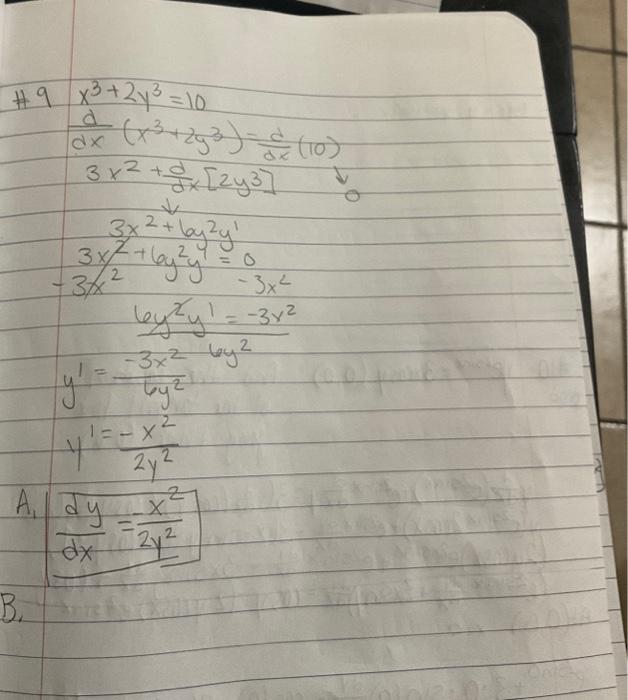 #9 x³+2y³=10
d/dx (x³+2y³)=d/dx(10)
3x²+d/dx[2y³] ↓ 0
↓
3x²+6y²y'
3x²+6y²y'=0
-3x² -3x²
6y²y'=-3x²
6y²
y'=-3x²/6y²
y'=-x²/2y²
A. dy/dx=-x²/2y²
B.